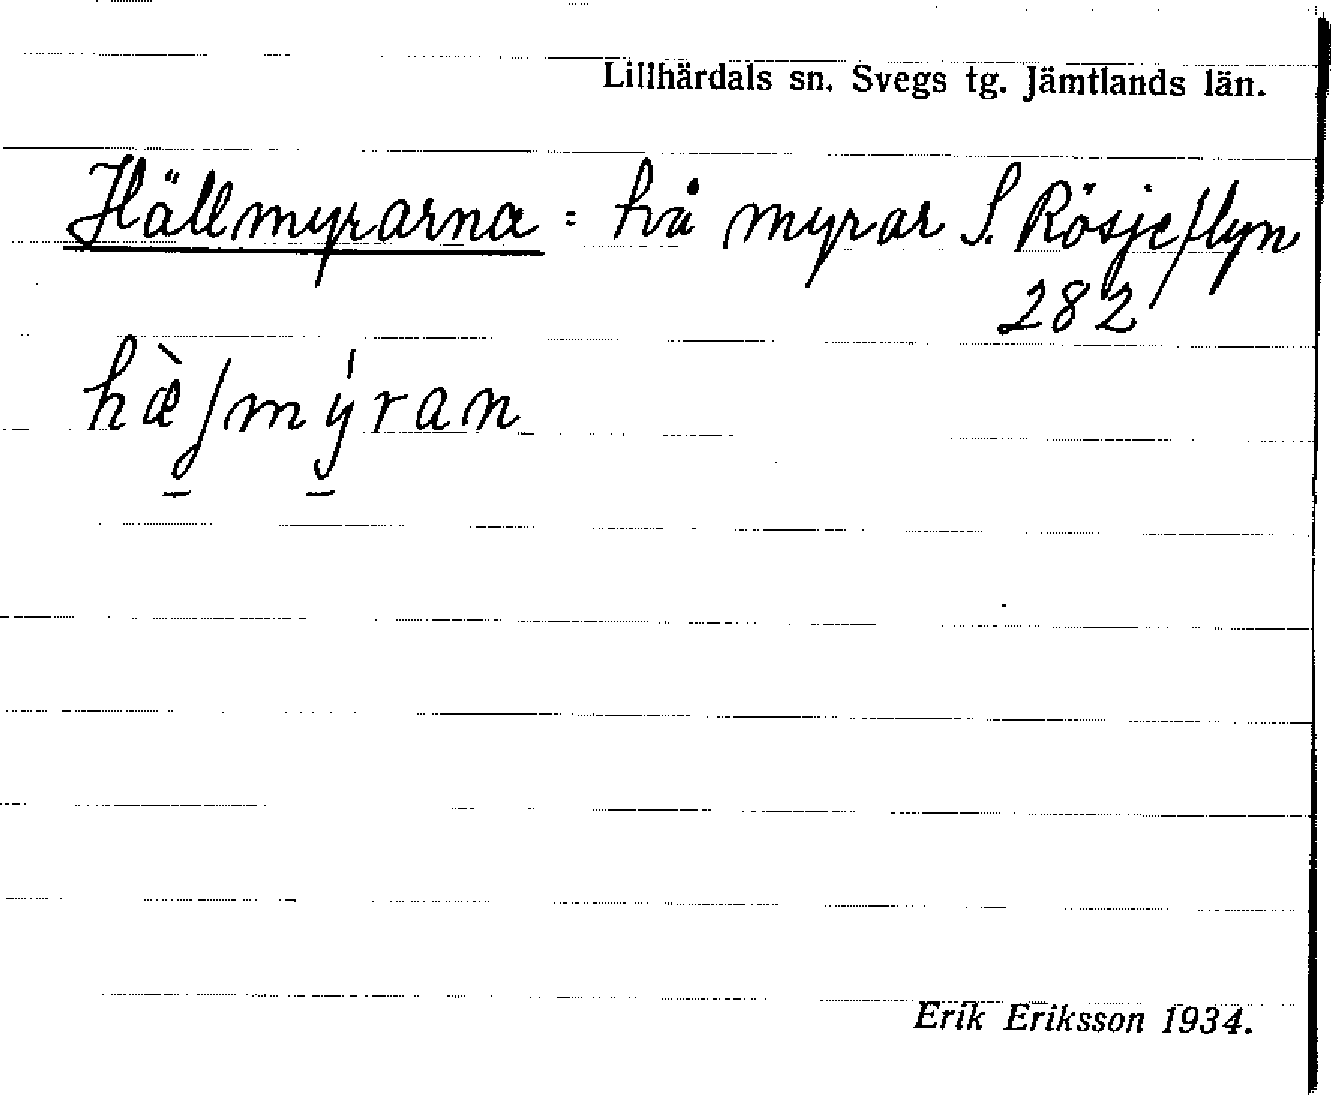 Lillhärdals sn. Svegs tg. Jämtlands län.
Hällmyrarna = två myrar S. Rösjeflyn
282
hæ̀ʃmýran
Erik Eriksson 1934.